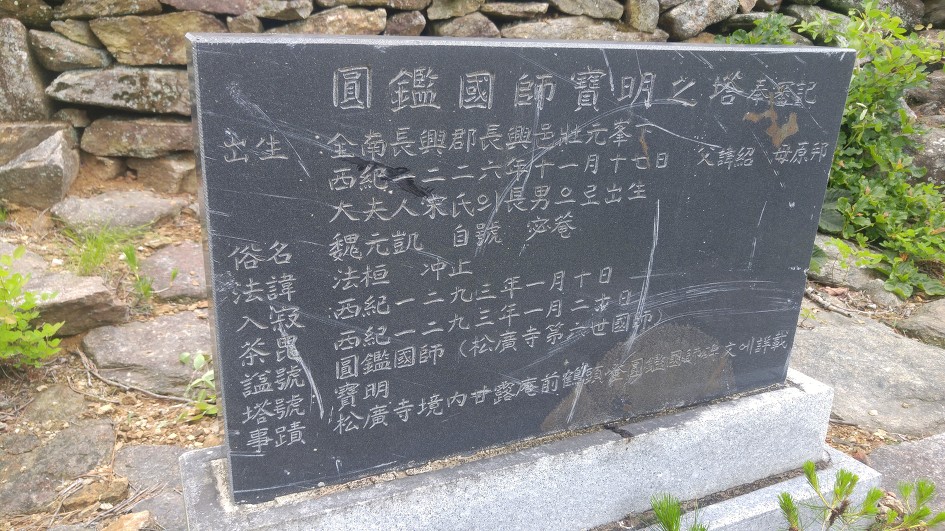 圓鑑國師寶明之塔 奉審記
出生 全南長興郡長興邑壯元峯下
西紀一二二六年十一月十七日 父諱紹 母原邦
大夫人宋氏의長男으로出生
俗名 魏元凱 自號 宓菴
法諱 法桓 冲止
入寂 西紀一二九三年一月十日
茶毘 西紀一二九三年一月二十日
諡號 圓鑑國師 (松廣寺第六世國師)
塔號 寶明
事蹟 松廣寺境內甘露庵前 圓鑑國師碑文에詳載